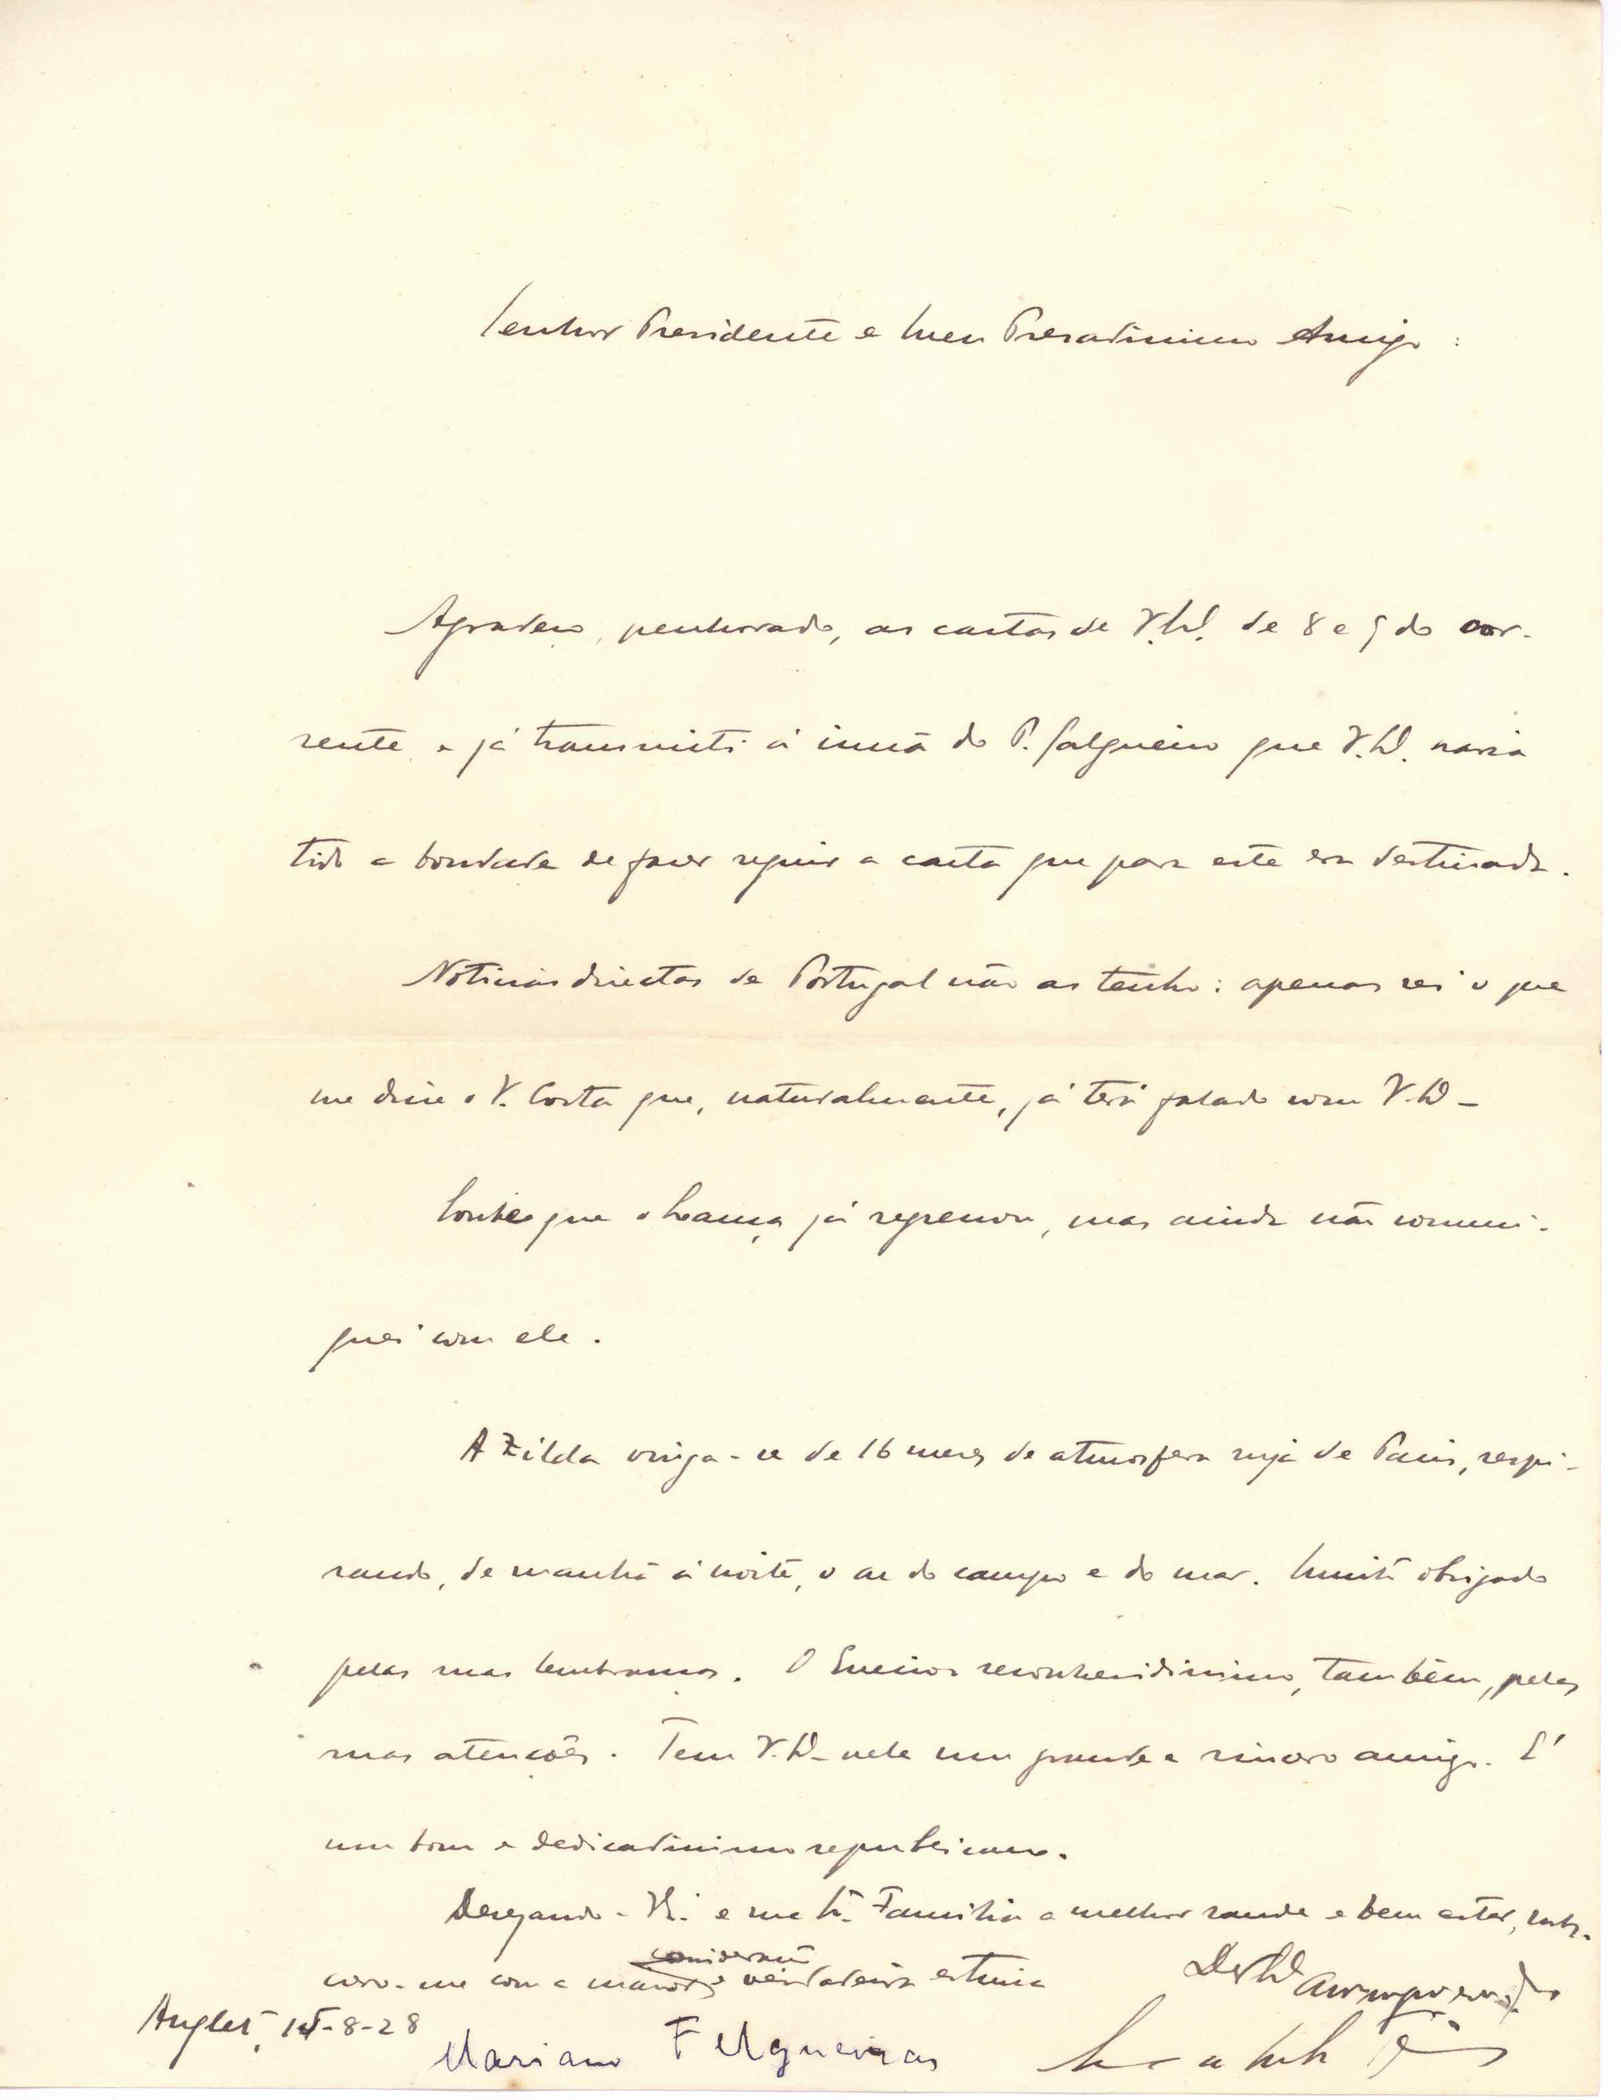 Senhor Presidente e meu Presadissimo Amigo:
Agradeço, penhorado, as cartas de V. Ex.ª de 8 e 9 do cor-
rente e já transmiti á irmã do P. Salgueiro que V. Ex.ª havia
tido a bondade de fazer seguir a carta que para este era destinada.
Noticias directas de Portugal não as tenho: apenas sei o que
me disse o V. Costa que, naturalmente, já terá falado com V. Ex.ª
que o já regressou, mas ainda não comuni-
quei com ele.
A Zilda vinga-se de 16 meses de atmosfera suja de Paris, respi-
rando, de manhã á noite, o ar do campo e do mar. Muito obrigado
pelas suas lembranças. O reconhecidissimo, tambêm, pelas
suas atenções. Tem V. Ex.ª nele um grande e sincero amigo. E'
um bom e dedicadissimo republicano.
Desejando-lhe e a sua Ex.ma Familia a melhor saude e bem estar, subs-
crevo-me com a maior consideração e verdadeira estima
De V. Ex.ª
Anglet, 15-8-28
Mariano Felgueiras